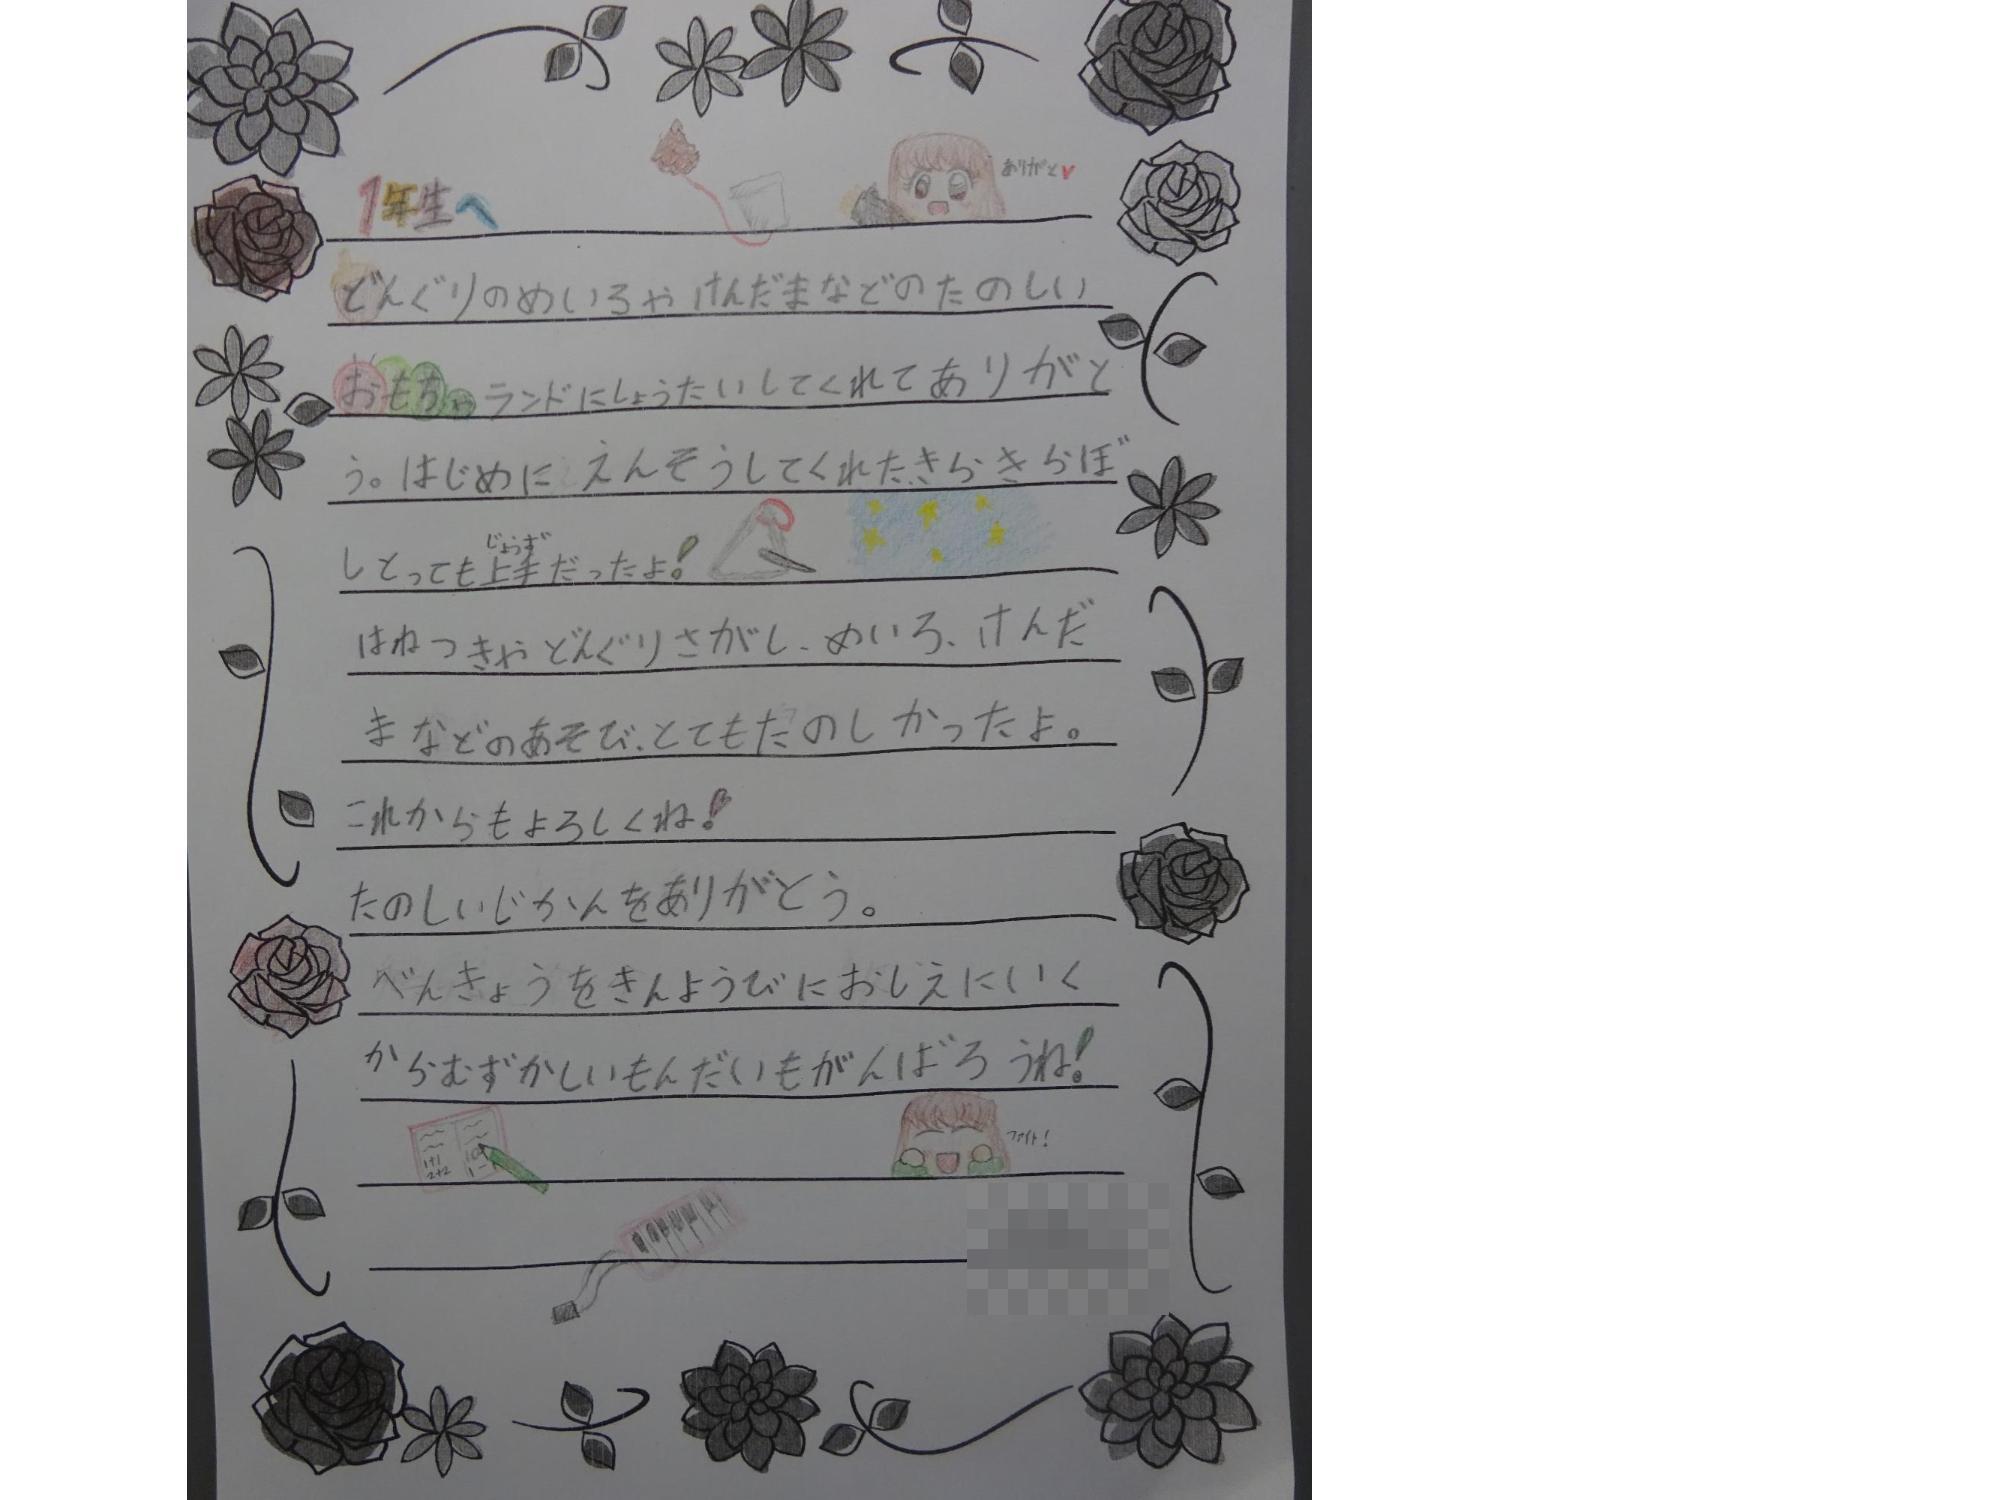 1年生へ
ありがと
どんぐりのめいろやけんだまなどのたのしい
おもちゃランドにしょうたいしてくれてありがと
う。はじめにえんそうしてくれたきらきらぼ
じょうず
しとっても上手だったよ!
はねつきやどんぐりさがし、めいろ、けんだ
まなどのあそび、とてもたのしかったよ。
これからもよろしくね!
たのしいじかんをありがとう。
べんきょうをきんようびにおしえにいく
からむずかしいもんだいもがんばろうね!
1+1
2+2
ファイト!